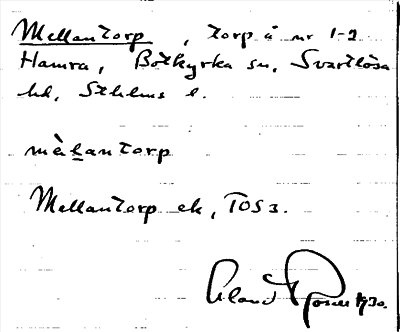 Mellantorp, torp å nr 1-2
Hamra, Botkyrka sn, Svartlösa
hd, Sthlms l.
mèlantorp
Mellantorp ek, TOS 3.
1930.